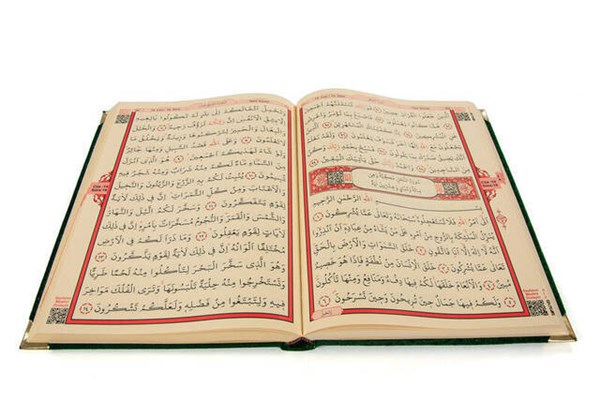 الَّذِينَ جَعَلُوا الْقُرْاٰنَ عِضِينَ ﴿٩١﴾ فَوَرَبِّكَ لَنَسْـَٔلَنَّهُمْ اَجْمَعِينَ
﴿٩٢﴾ عَمَّا كَانُوا يَعْمَلُونَ ﴿٩٣﴾ فَاصْدَعْ بِمَا تُؤْمَرُ وَاَعْرِضْ
عَنِ الْمُشْرِكِينَ ﴿٩٤﴾ اِنَّا كَفَيْنَاكَ الْمُسْتَهْزِئِينَ ﴿٩٥﴾ الَّذِينَ
يَجْعَلُونَ مَعَ اللّٰهِ اِلٰهًا اٰخَرَ فَسَوْفَ يَعْلَمُونَ ﴿٩٦﴾ وَلَقَدْ نَعْلَمُ
اَنَّكَ يَضِيقُ صَدْرُكَ بِمَا يَقُولُونَ ﴿٩٧﴾ فَسَبِّحْ بِحَمْدِ رَبِّكَ
وَكُنْ مِنَ السَّاجِدِينَ ﴿٩٨﴾ وَاعْبُدْ رَبَّكَ حَتّٰى يَأْتِيَكَ الْيَقِينُ ﴿٩٩﴾
بِسْمِ اللّٰهِ الرَّحْمٰنِ الرَّحِيمِ
اَتٰى اَمْرُ اللّٰهِ فَلَا تَسْتَعْجِلُوهُ سُبْحَانَهُ وَتَعَالٰى عَمَّا يُشْرِكُونَ ﴿١﴾
يُنَزِّلُ الْمَلٰٓئِكَةَ بِالرُّوحِ مِنْ اَمْرِهِ عَلٰى مَنْ يَشَاءُ مِنْ عِبَادِهِ اَنْ
اَنْذِرُوا اَنَّهُ لَا اِلٰهَ اِلَّا اَنَا فَاتَّقُونِ ﴿٢﴾ خَلَقَ السَّمٰوَاتِ وَالْاَرْضَ بِالْحَقِّ
تَعَالٰى عَمَّا يُشْرِكُونَ ﴿٣﴾ خَلَقَ الْاِنْسَانَ مِنْ نُطْفَةٍ فَاِذَا هُوَ خَصِيمٌ
مُبِينٌ ﴿٤﴾ وَالْاَنْعَامَ خَلَقَهَا لَكُمْ فِيهَا دِفْءٌ وَمَنَافِعُ وَمِنْهَا تَأْكُلُونَ
﴿٥﴾ وَلَكُمْ فِيهَا جَمَالٌ حِينَ تُرِيحُونَ وَحِينَ تَسْرَحُونَ ﴿٦﴾
وَتَحْمِلُ اَثْقَالَكُمْ اِلٰى بَلَدٍ لَمْ تَكُونُوا بَالِغِيهِ
اِلَّا بِشِقِّ الْاَنْفُسِ اِنَّ رَبَّكُمْ لَرَؤُفٌ رَحِيمٌ ﴿٧﴾ وَالْخَيْلَ
وَالْبِغَالَ وَالْحَمِيرَ لِتَرْكَبُوهَا وَزِينَةً وَيَخْلُقُ مَا
لَا تَعْلَمُونَ ﴿٨﴾ وَعَلَى اللّٰهِ قَصْدُ السَّبِيلِ وَمِنْهَا جَائِرٌ
وَلَوْ شَاءَ لَهَدٰيكُمْ اَجْمَعِينَ ﴿٩﴾ هُوَ الَّذِي اَنْزَلَ
مِنَ السَّمَاءِ مَاءً لَكُمْ مِنْهُ شَرَابٌ وَمِنْهُ شَجَرٌ فِيهِ
تُسِيمُونَ ﴿١٠﴾ يُنْبِتُ لَكُمْ بِهِ الزَّرْعَ وَالزَّيْتُونَ وَالنَّخِيلَ
وَالْاَعْنَابَ وَمِنْ كُلِّ الثَّمَرَاتِ اِنَّ فِي ذٰلِكَ لَاٰيَةً
لِقَوْمٍ يَتَفَكَّرُونَ ﴿١١﴾ وَسَخَّرَ لَكُمُ الَّيْلَ وَالنَّهَارَ
وَالشَّمْسَ وَالْقَمَرَ وَالنُّجُومُ مُسَخَّرَاتٌ بِاَمْرِهِ اِنَّ فِي ذٰلِكَ
لَاٰيَاتٍ لِقَوْمٍ يَعْقِلُونَ ﴿١٢﴾ وَمَا ذَرَاَ لَكُمْ فِي الْاَرْضِ
مُخْتَلِفًا اَلْوَانُهُ اِنَّ فِي ذٰلِكَ لَاٰيَةً لِقَوْمٍ يَذَّكَّرُونَ ﴿١٣﴾
وَهُوَ الَّذِي سَخَّرَ الْبَحْرَ لِتَأْكُلُوا مِنْهُ لَحْمًا طَرِيًّا
وَتَسْتَخْرِجُوا مِنْهُ حِلْيَةً تَلْبَسُونَهَا وَتَرَى الْفُلْكَ مَوَاخِرَ
فِيهِ وَلِتَبْتَغُوا مِنْ فَضْلِهِ وَلَعَلَّكُمْ تَشْكُرُونَ ﴿١٤﴾